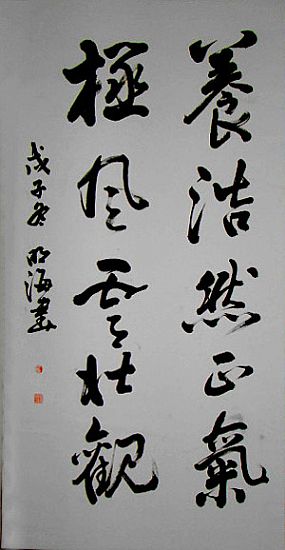 養浩然正氣
極風雲壯觀
戊子冬 明海書